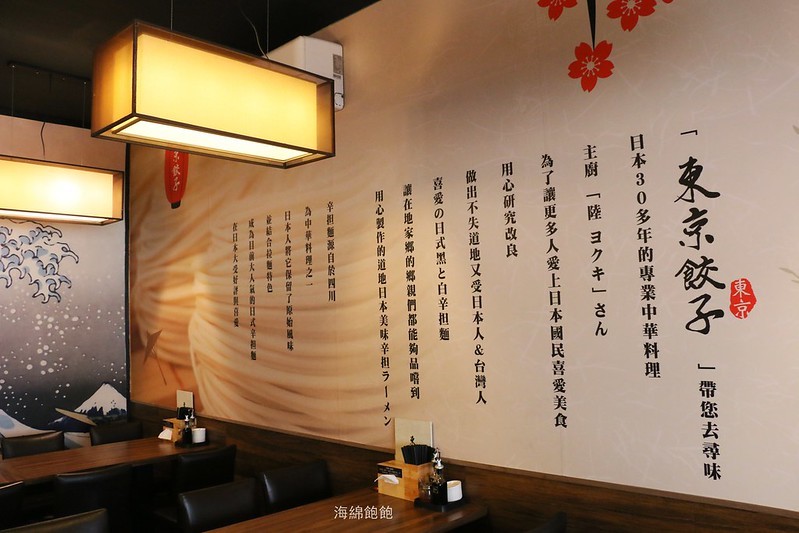 「東京餃子」帶您去尋味
東京
日本30多年的專業中華料理
主廚「陸 ヨクキ」さん
為了讓更多人愛上日本國民喜愛美食
用心研究改良
做出不失道地又受日本人&台灣人
喜愛の日式黑と白辛担麵
讓在地家鄉的鄉親們都能夠品嚐到
用心製作的道地日本美味辛担ラーメン
辛担麵源自於四川
為中華料理之一
日本人將它保留了原始風味
並結合拉麵特色
成為目前大人氣的日式辛担麵
在日本大受好評與喜愛
京餃子
海綿飽飽